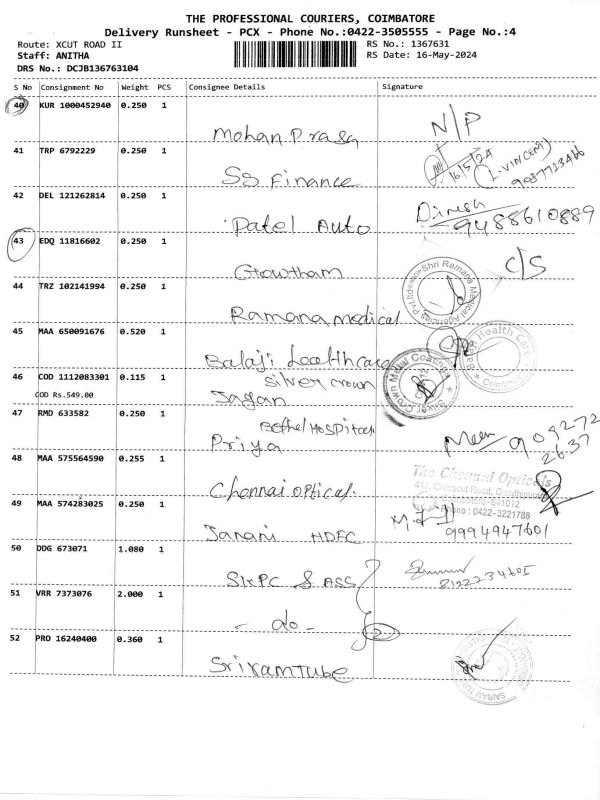 THE PROFESSIONAL COURIERS, COIMBATORE
Delivery Runsheet - PCX - Phone No.:0422-3505555 - Page No.:4
Route: XCUT ROAD II RS No.: 1367631
Staff: ANITHA RS Date: 16-May-2024
DRS No.: DCJB136763104
S No Consignment No Weight PCS Consignee Details Signature
40 KUR 1000452940 0.250 1
Mohan Prasa N/P
41 TRP 6792229 0.250 1
16/5/24 (I.VINCEM)
SS Finance 9087723466
42 DEL 121262814 0.250 1
Dinesh
Patel Auto 9488610889
43 EDQ 11816602 0.250 1
Growtham C/S
44 TRZ 102141994 0.250 1
Shri Ramana Medical Agencies Pvt Ltd
Ramana medical
45 MAA 650091676 0.520 1
Balaji Health Care
Balaji healthcare
46 COD 1112083301 0.115 1
COD Rs.549.00
silver crown
Silver Crown Metal Coatings
Jagan
47 RMD 633582 0.250 1
Bethel Hospital
Priya
48 MAA 575564590 0.255 1
The Chennai Opticals
Chennai optical.
Coimbatore-641012
Phone : 0422-3221788
49 MAA 574283025 0.250 1
Janani HDFC 9994947601
50 DDG 673071 1.080 1
SIRPC & ASS
51 VRR 7373076 2.000 1
- do -
52 PRO 16240400 0.360 1
Sriramtube